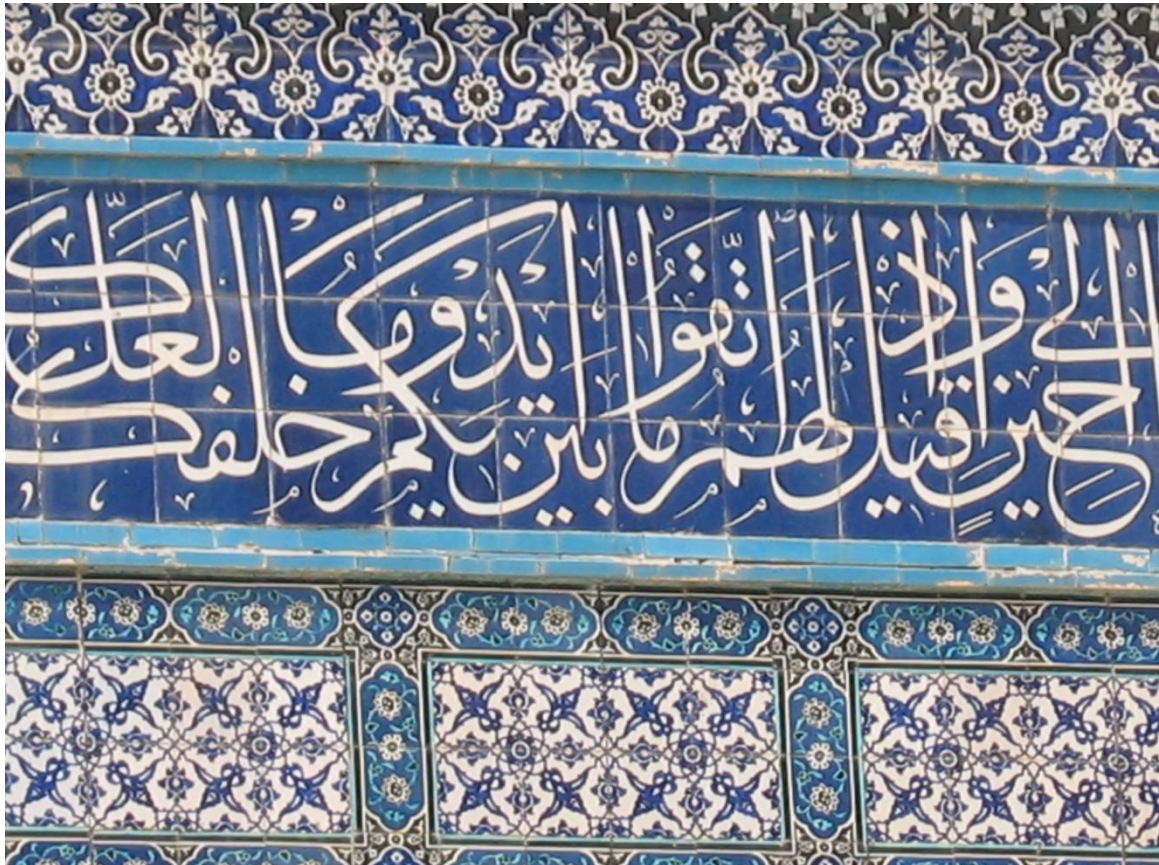 الى حين واذا قيل لهم اتقوا ما بين ايديكم وما خلفكم لعلكم